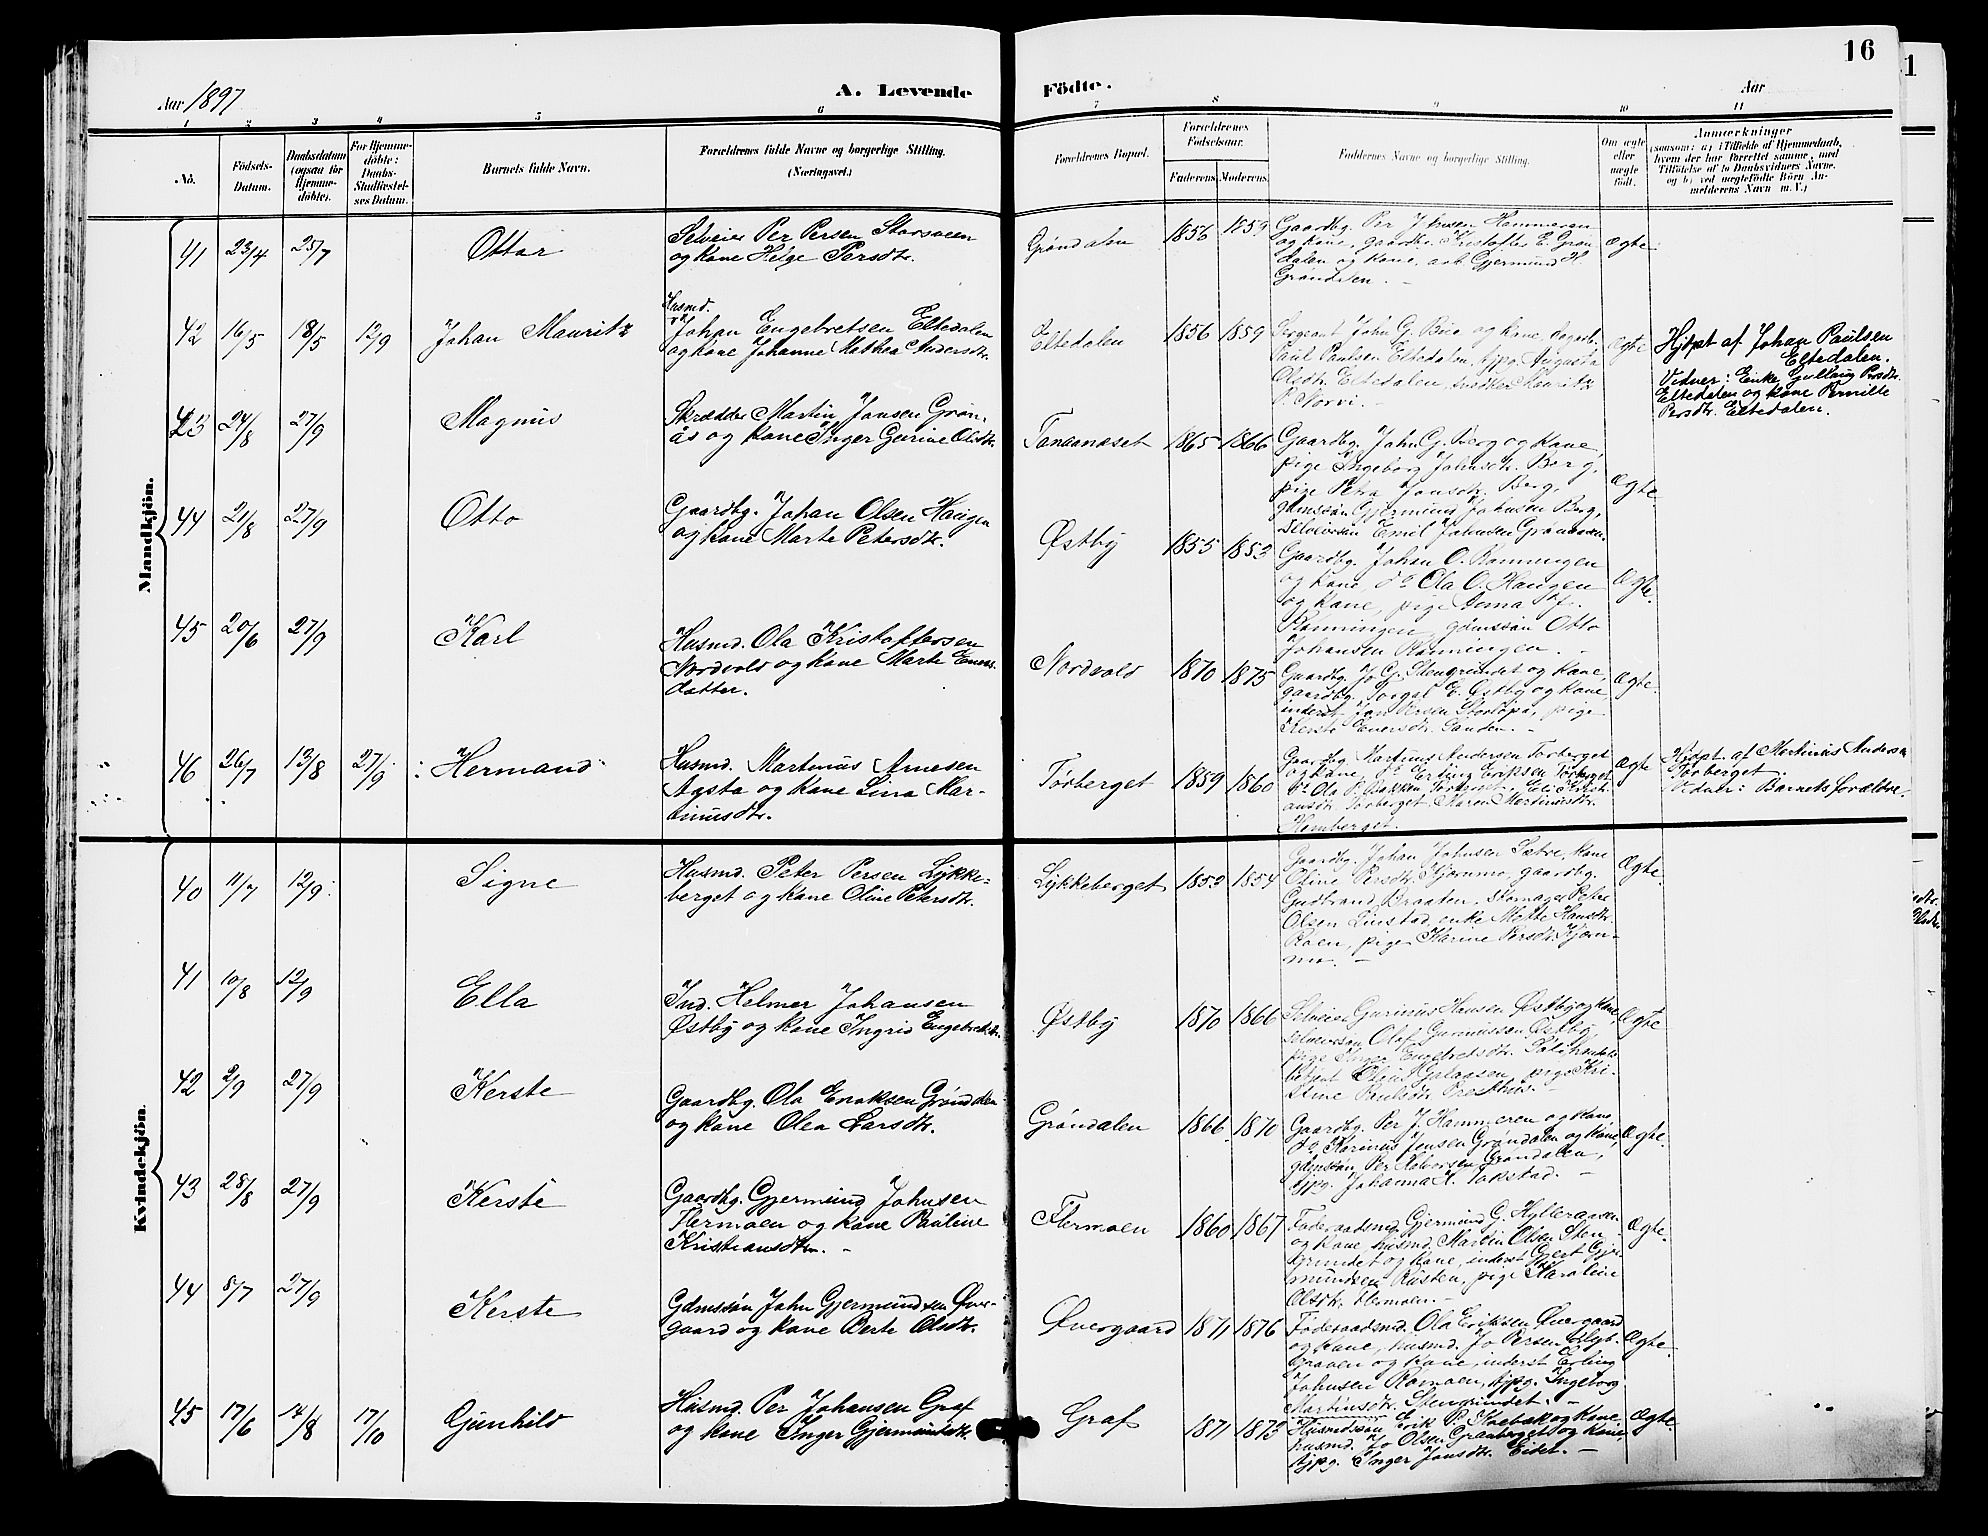 16
Aar 1897
A. Levende
Födte.
Aar
1 2 3 4 5 6 7 8 9 10 11
No.
Födsels-
Datum.
Daabsdatum
(ogsaa for
Hjemme-
döbte).
For Hjemme-
döbte:
Daabs-
Stadfæstel-
ses Datum.
Barnets fulde Navn.
Forældrenes fulde Navne og borgerlige Stilling.
(Næringsvei.)
Forældrenes Bopæl.
Forældrenes
Födselsaar.
Faderens. Moderens.
Faddernes Navne og borgerlige Stilling.
Om ægte
eller
uægte
födt.
Anmærkninger
(saasom: a) i Tilfælde af Hjemmedaab,
hvem der har forrettet samme, med
Tilföielse af to Daabsvidners Navne,
og b) ved uægtefödte Börn An-
melderens Navn m. V.)
Mandkjön.
41 23/4 25/7 Ottar
Selveier Per Persen Storsveen
og kone Helge Persdtr.
Gröndalen 1856 1859
Gaardbg. Per Johnsen Hammeren
og kone, gaardbr. Kristoffer E. Grön-
dalen og kone, arb. Gjermund H
Gröndalen. -
Ægte.
42 16/5 18/5 12/9 Johan Mauritz
Husmd.
Johan Engebretsen Eltedalen
og kone Johanne Mathea Andersdtr.
Eltedalen 1856 1859
Sergeant John G. Bue og kone,
Paul Paulsen Eltedalen, tjpg. Augusta
Olsdtr. Eltedalen, Mauritz
P. Norvi. -
Ægte
Hjdpt af Johan Paulsen
Eltedalen.
Vidner: Enke Gullaug Persdtr.
Eltedalen og kone Pernille
Persdtr. Eltedalen.
43 24/8 27/9 Magnus
Skrædder Martin Jonsen Grön-
ås og kone Inger Gurine Olsdtr.
Tanaanæset 1865 1866
Gaardbg. John G. Berg og kone,
pige Ingeborg Johnsdtr. Berg,
pige Petra Jonsdtr. Berg,
gdmssön Gjermund Johnsen Berg,
selveiersön Emil Johnsen Grönaasen.
Ægte.
44 2/8 27/9 Otto
Gaardbg. Johan Olsen Haugen
og kone Marte Petersdtr.
Østby 1855 1853
Gaardbg. Johan O. Rönningen
og kone, do Ola O. Haugen
og kone, pige Anna Kf.
Rönningen, gdmssön Otto
Johansen Rönningen. -
Ægte.
45 20/6 27/9 Karl
Husmd. Ola Kristoffersen
Nordvold og kone Marte Eners-
datter.
Nordvold 1870 1875
Gaardbg. Jo G. Stengrundet og kone,
gaardbg. Torgal E. Østby og kone,
inderst Jon Persen Storlöpa, pige
Kerste Enersdtr. Sanden. -
Ægte.
46 26/7 13/8 27/9 Hermand
Husmd. Martinus Arnesen
Agsta og kone Lina Mar-
tinusdtr.
Törberget 1859 1860
Gaardbg. Martinus Andersen Törberget
og kone, do Erling Eripsen Törberget,
do Ola P. Bakken, Törberget, Eli Krist-
ansdtr. Törberget, Karen Martinusdtr.
Hemberget.
Ægte
Hjdpt af Martinus Andersen
Törberget.
Vidner: Barnets forældre.
Kvindekjön.
40 11/7 12/9 Signe
Husmd. Peter Persen Lykke-
berget og kone Oline Petersdtr.
Lykkeberget 1853 1854
Gaardbg. Johan Johnsen Sætre, kone
Oline Persdtr. Kjernmo, gaardbg.
Gudbrand Braaten, skomager Peter
Olsen Linstad, enke Mathe Hansdtr.
Roen, pige Karine Persdtr. Kjern-
mo. -
Ægte.
41 10/8 12/9 Ella
Ind. Helmer Johansen
Østby og kone Ingrid Engebretsdtr.
Østby 1870 1866
Selveier Gurinus Hansen Østby og kone,
selveiersön Olaf Gurinussen Østby,
pige Inger Engebretsdtr. Pölshandels-
betjent Olaus Galaasen, pige Kri-
stine Paulsdtr. Præsthus. -
Ægte
42 2/9 27/9 Kerste
Gaardbg. Ola Enoksen Gröndalen
og kone Olea Larsdtr.
Gröndalen 1866 1870
Gaardbg. Per J. Hammeren og kone,
do Karinus Jensen Gröndalen og kone,
gdmssön Per Halvorsen Gröndalen,
tjpg. Johanna H. Jokstad. -
Ægte.
43 28/8 27/9 Kerste
Gaardbg. Gjermund Johnsen
Flermoen og kone Pauline
Kristiansdtr. -
Flermoen 1860 1867
Föderaadsmd. Gjermund G. Hylleraasen
og kone, husmd. Martin Olsen Sten-
grundet og kone, inderst Gjert Gjer-
mundsen Rusten, pige Karoline
Olsdtr. Flermoen. -
Ægte.
44 8/7 27/9 Kerste
Gdmssön John Gjermundsen Över-
gaard og kone Berte Olsdtr.
Övergaard 1871 1876
Föderaadsmd. Ola Eriksen Övergaard
og kone, husmd. Jo Persen Slyb-
graven og kone, inderst Erling
Johnsen Römoen, tjpg. Ingeborg
Martinsdtr. Stengrundet. -
Ægte.
45 17/6 14/8 17/10 Gunhild
Husmd. Per Johansen Graf
og kone Inger Gjermundsdtr.
Graf 1871 1873
Husmdssön Erik P. Knebak og kone,
husmd. Jo Olsen Granberget og kone,
tjpg. Inger Jonsdtr. Eidet. -
Ægte.